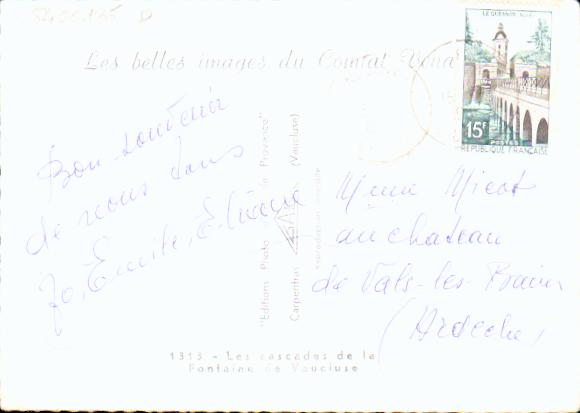 54.06.135 D
Les belles images du Comtat Vena
LE QUESNOY NORD
15F
POSTES
REPUBLIQUE FRANÇAISE
Bon souvenir
de nous tous
Jo, Emile, Etienne
"Editions Photo de Provence"
Carpentras (Vaucluse)
Reproduction interdite
Mme Micot
au chateau
de Vals-les-Bains
(Ardeche)
1313 - Les cascades de la
Fontaine de Vaucluse